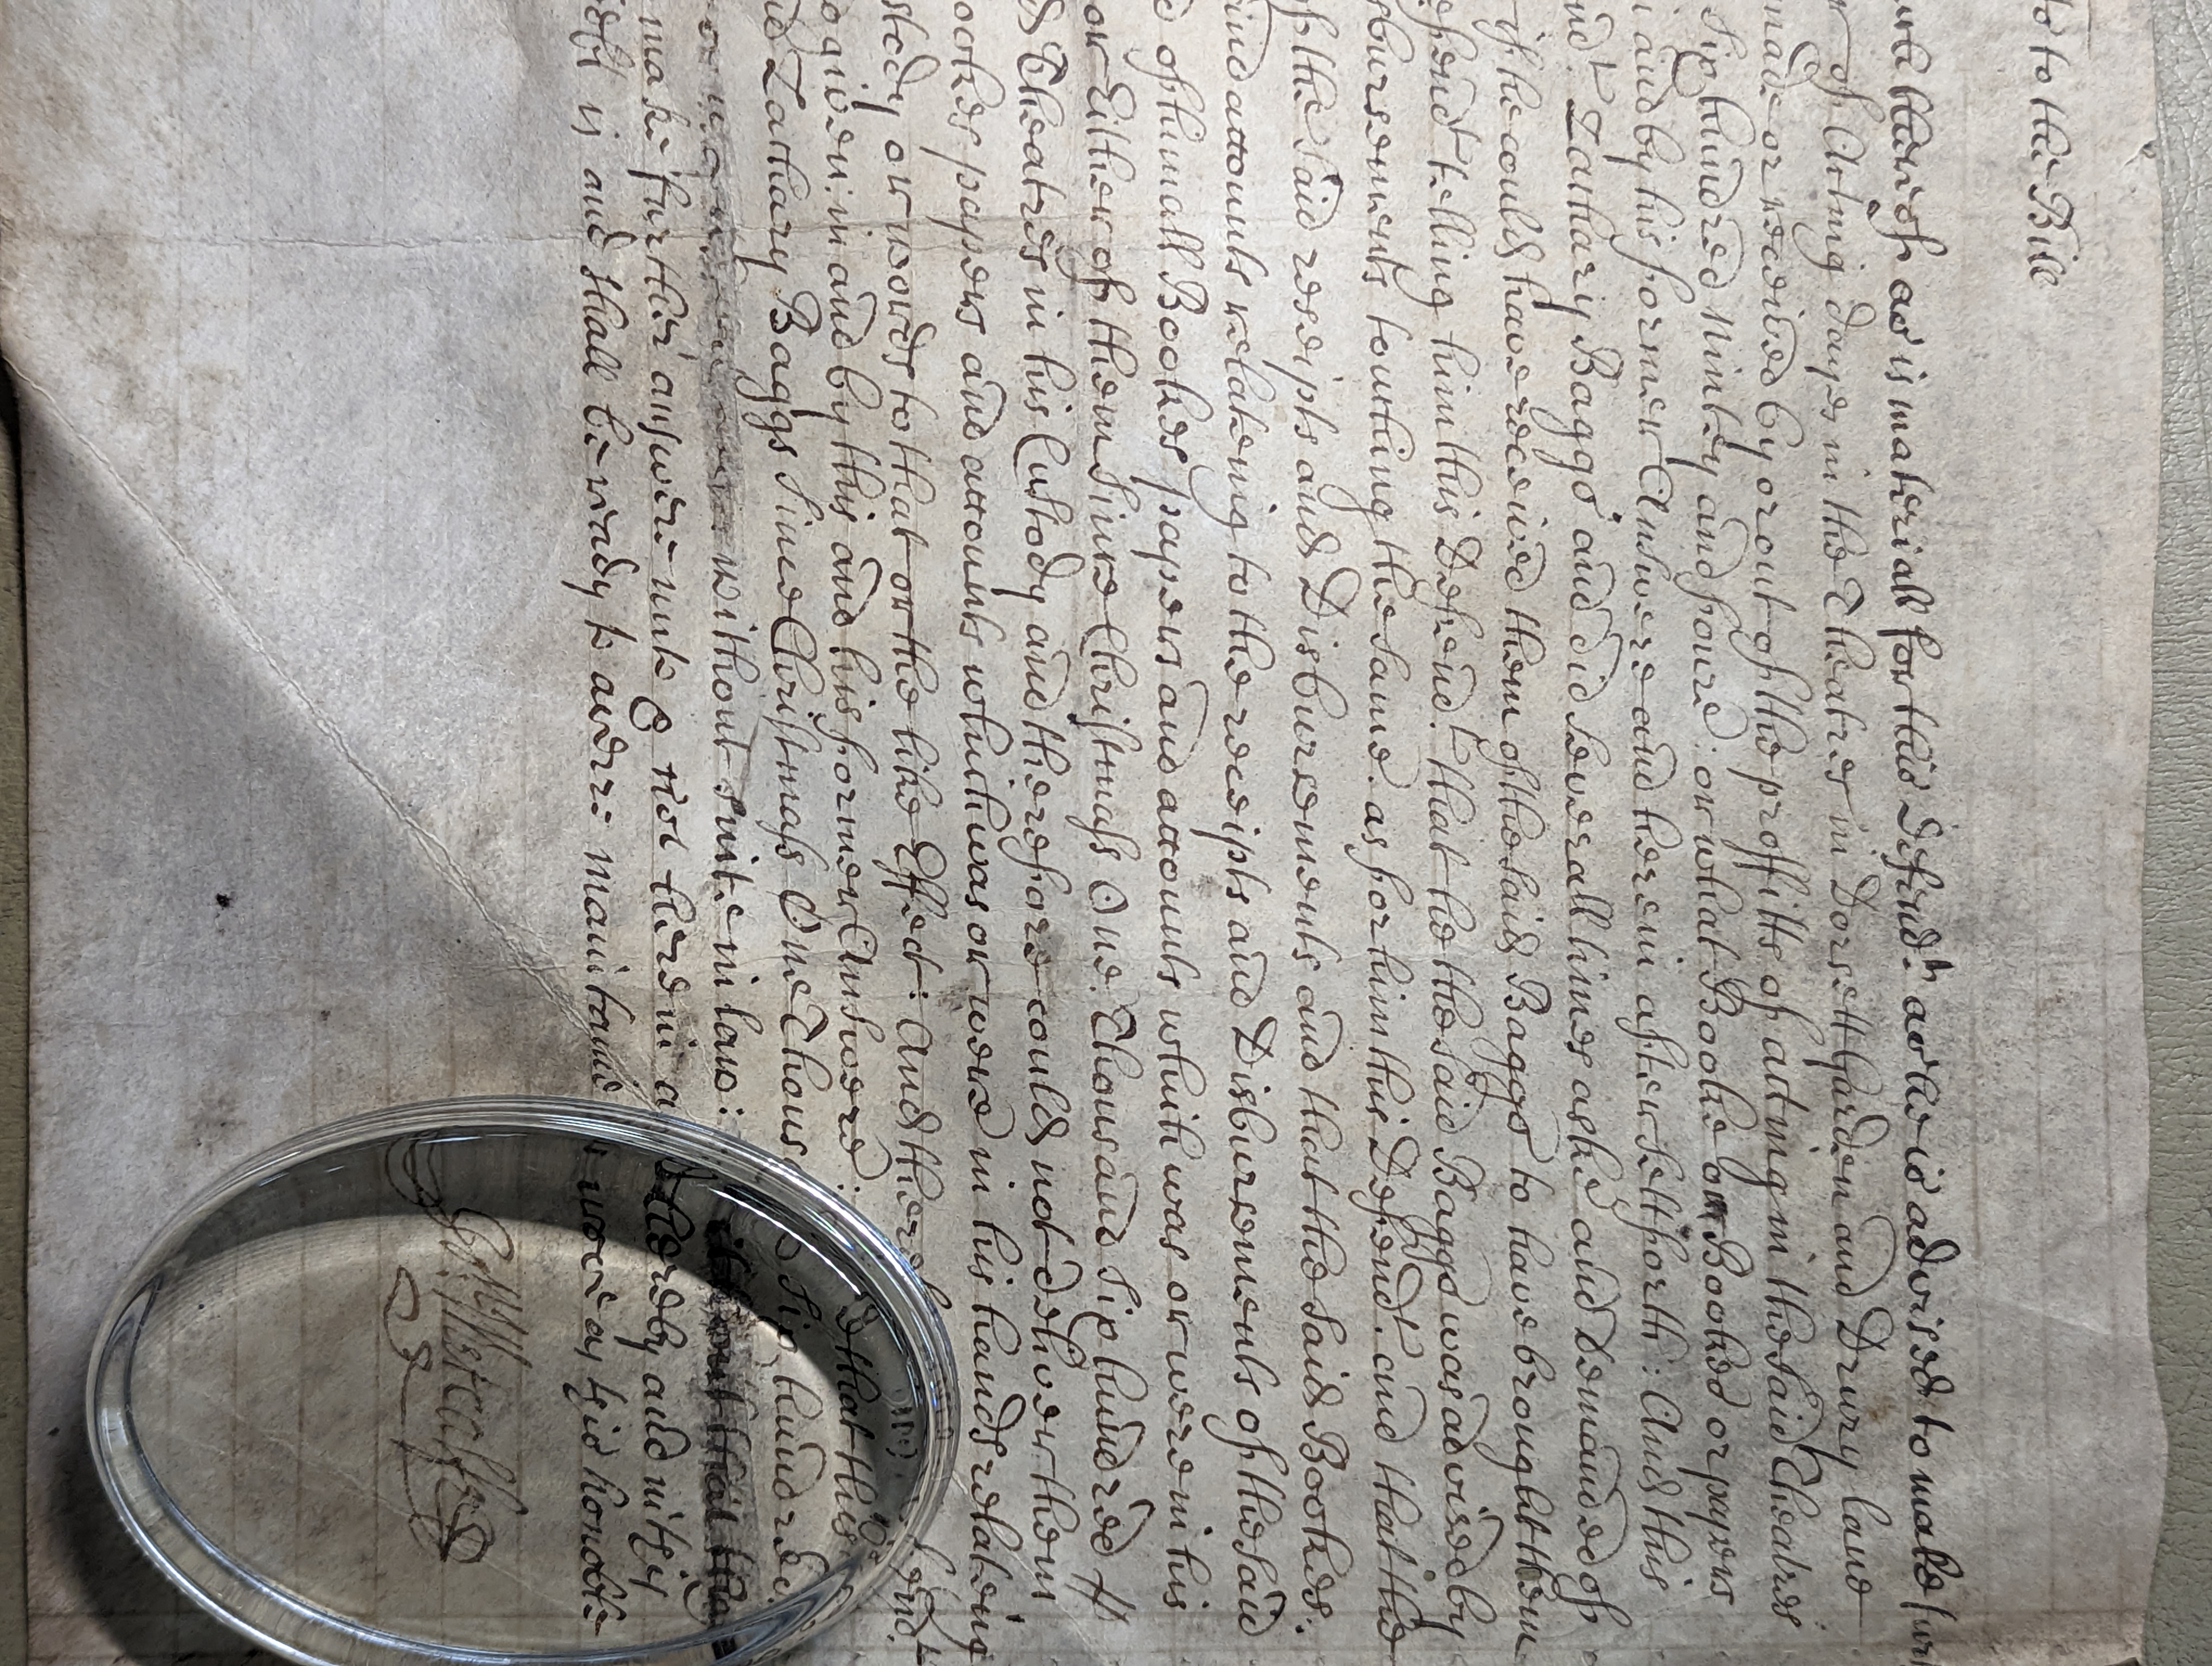 to to this Bill
thereof as is materiall for this Defendt as he is advised to make fur
r of Acting dayes in the Theatres in Dorsett Garden and Drury lane
made or received by or out of the proffitts of acting in the said Theatres
Six hundred Ninety and foure: or what Booke or Bookes or papers
and by his former Answere and herein after sett forth: And this
and Zachary Baggs and did severall times aske and Demanded of
if he could have received them of the said Baggs to have brought them
efendt telling him this Defendt that he the said Baggs was advised by
sbursements touching the same as for him this Defendt and that the
of the said receipts and Disbursements and that the said Bookes
and accounts relateing to the receipts and Disbursements of the said
d of him all Bookes papers and accounts which was or were in his
or Either of them since Christmass One Thousand Six hundred #
d Theatres in his Custody and therefore could not deliver them
ookes papers and accounts which was or were in his hands relateing
stody or words to that or the like Effect: And
ogiven in and by this and his former Answere: d that this
ed Zachary Baggs since Christmass One Thous d Six hundred
without suite in law:
make further answere unto & not herein a and nitey
is and shall be ready to averre maintaine as yis honoble